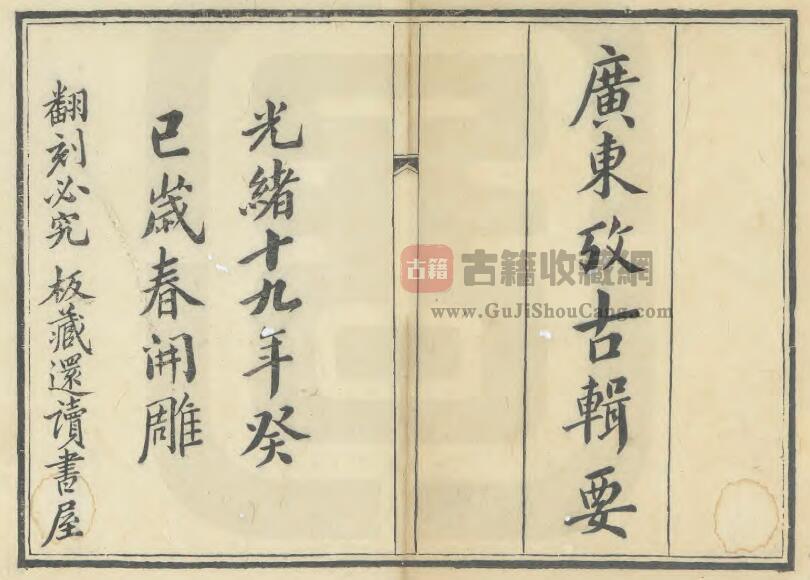 廣東攷古輯要
光緒十九年癸
巳歲春開雕
翻刻必究 板藏還讀書屋
古籍 古籍收藏網
www.GuJiShouCang.com